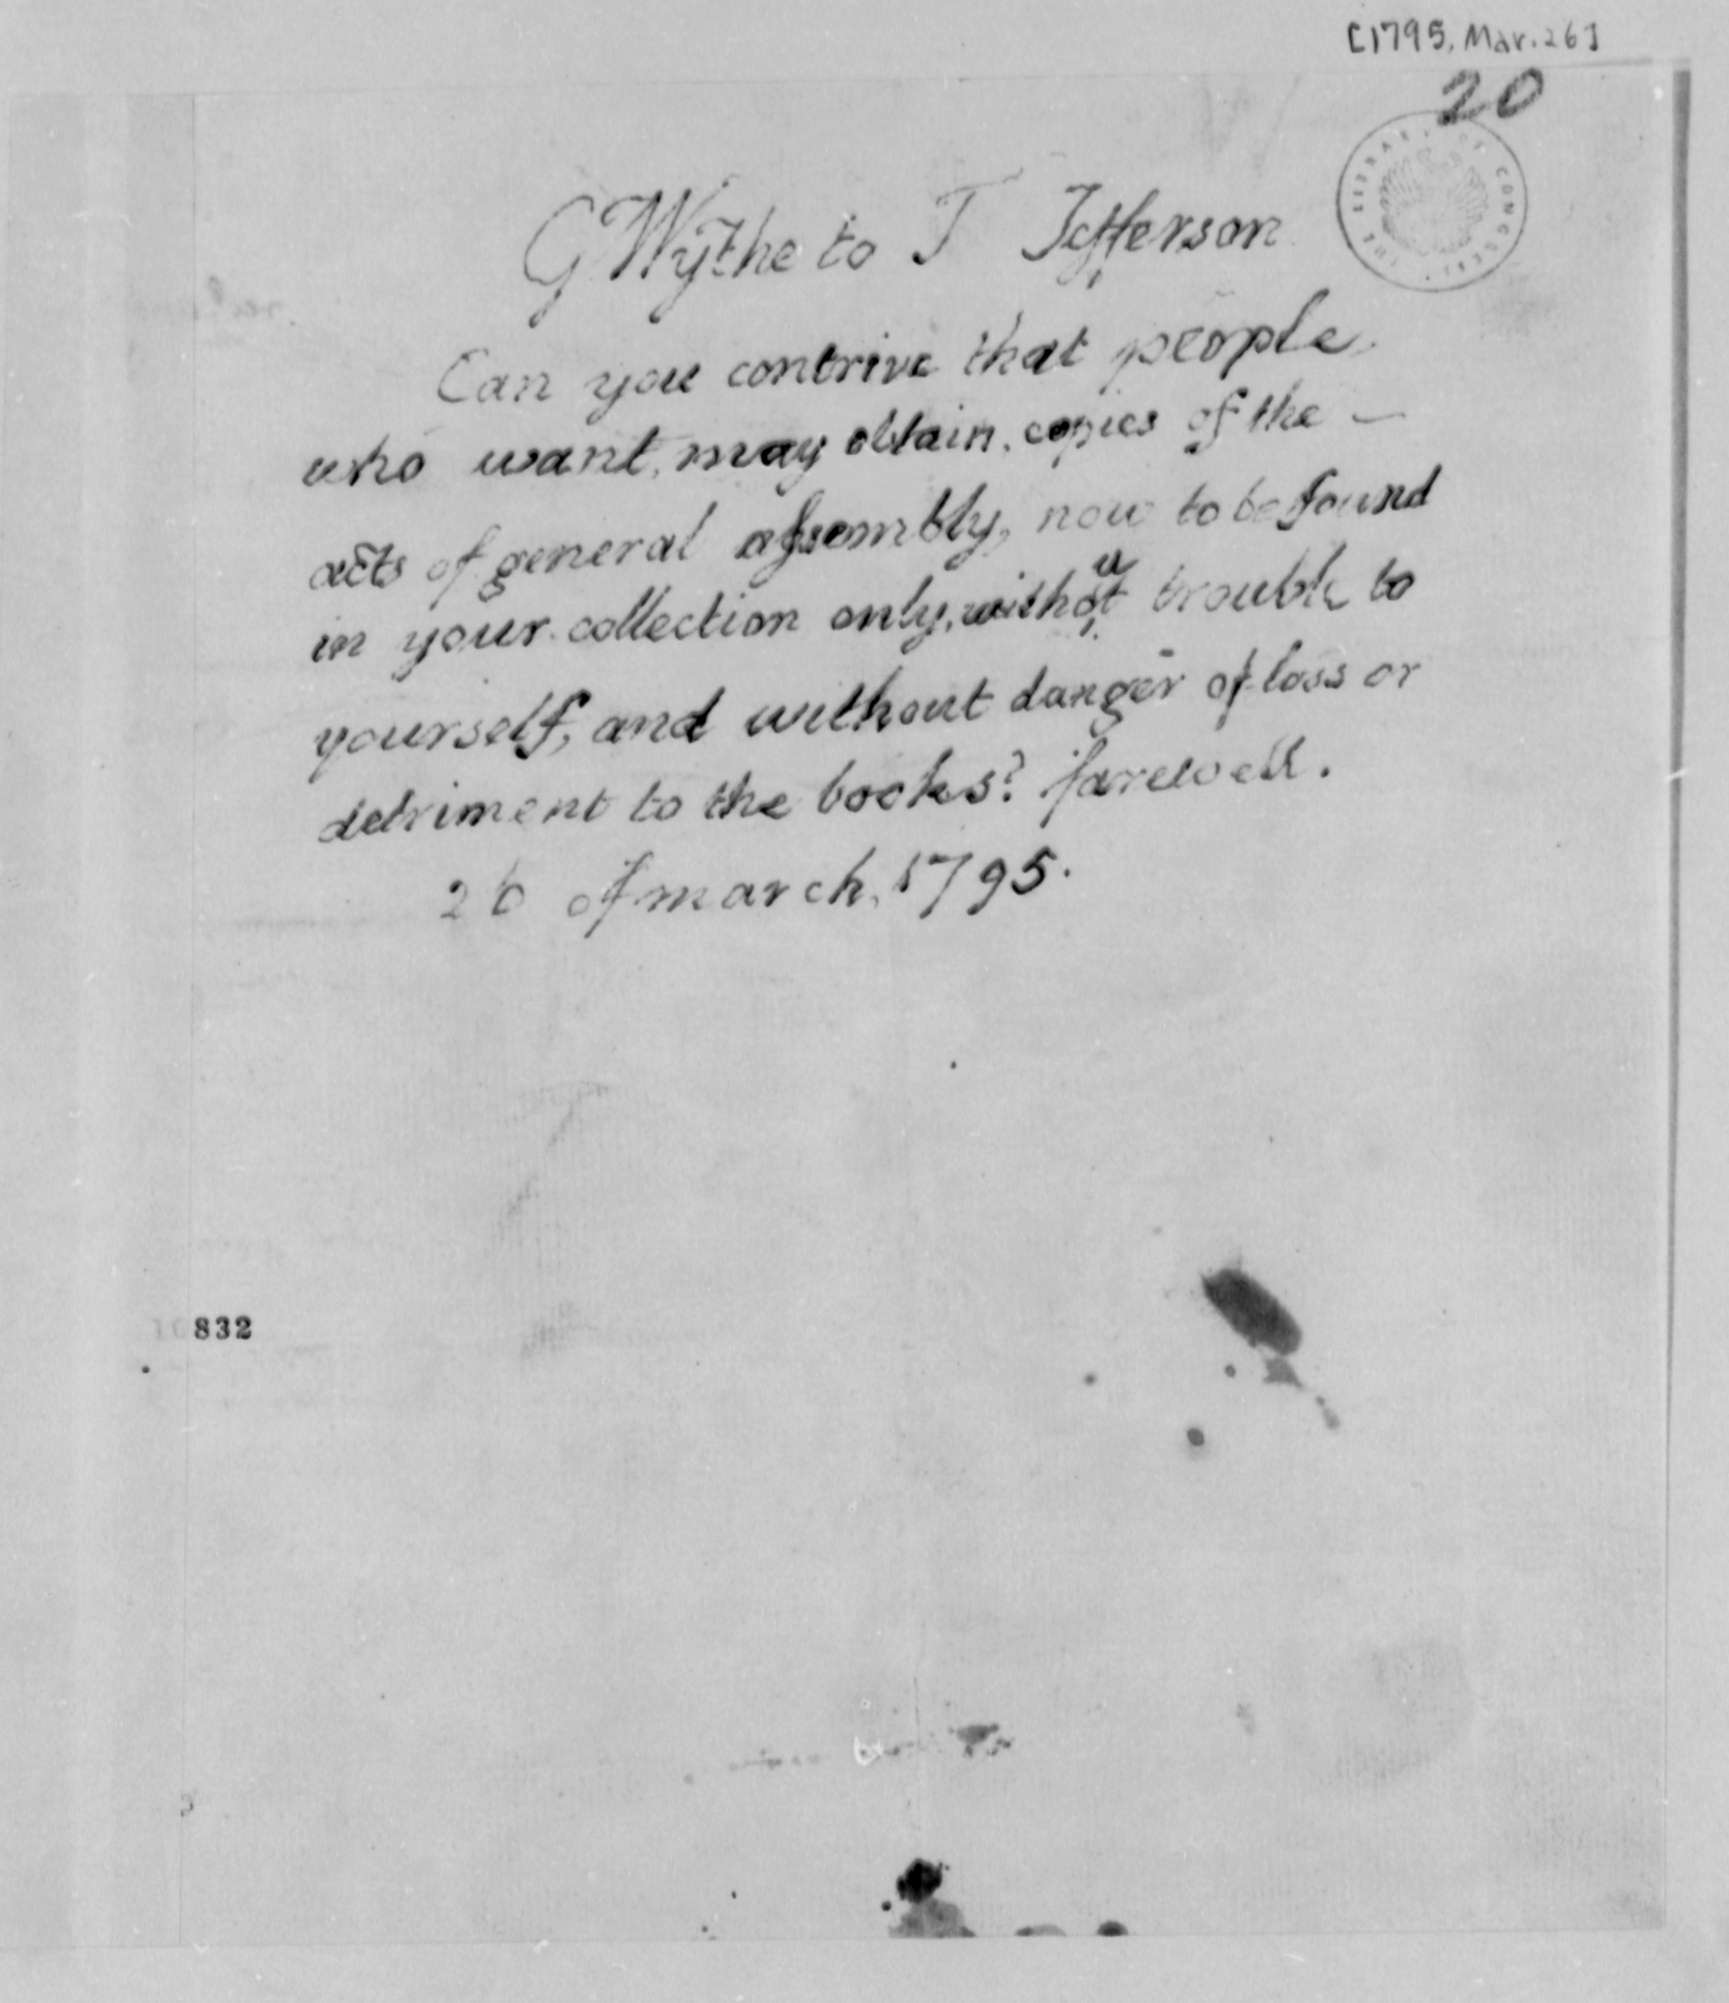 [1795, Mar. 26]
20
THE LIBRARY OF CONGRESS
G Wythe to T Jefferson
Can you contrive that people,
who want, may obtain, copies of the —
acts of general assembly, now to be found
in your collection only, without trouble to
yourself, and without danger of loss or
detriment to the books? farewell.
26 of march, 1795.
10832